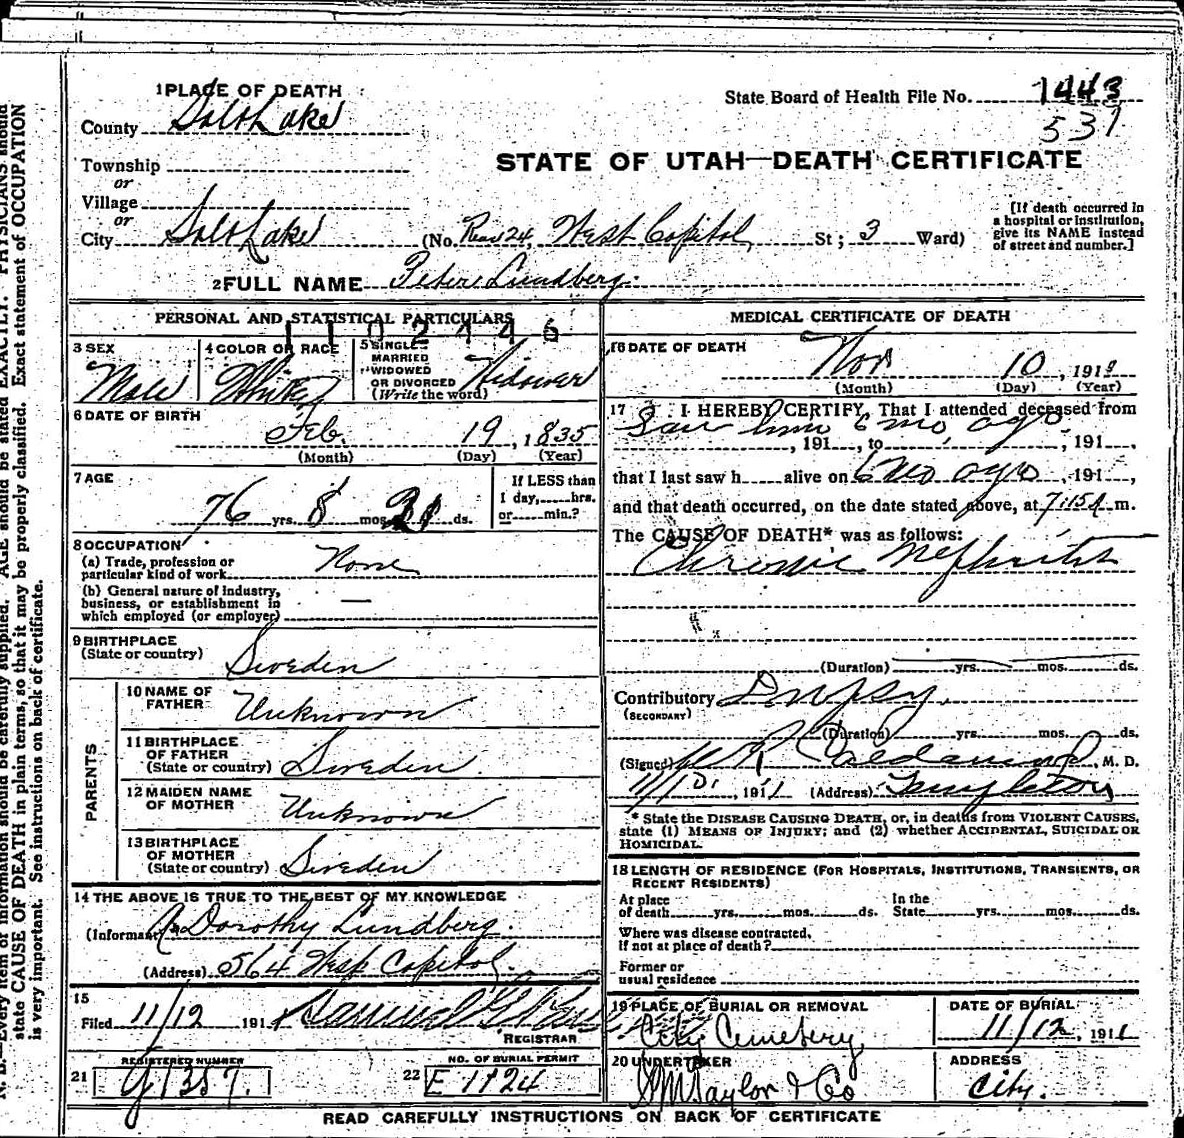 1 PLACE OF DEATH
State Board of Health File No. 1443
537
County Salt Lake
STATE OF UTAH—DEATH CERTIFICATE
Township
or
Village
or
City Salt Lake (No. Rear 24, West Capitol St; 3 Ward)
[If death occurred in
a hospital or institution,
give its NAME instead
of street and number.]
2 FULL NAME Peter Lundberg.
PERSONAL AND STATISTICAL PARTICULARS
1102446
3 SEX
Male
4 COLOR OR RACE
White
5 SINGLE
MARRIED
WIDOWED
OR DIVORCED
(Write the word)
Widower
6 DATE OF BIRTH
Feb. 19, 1835
(Month) (Day) (Year)
7 AGE
76 yrs. 8 mos. 21 ds.
If LESS than
1 day, hrs.
or min.?
8 OCCUPATION
(a) Trade, profession or
particular kind of work None
(b) General nature of industry,
business, or establishment in
which employed (or employer) —
9 BIRTHPLACE
(State or country)
Sweden
PARENTS
10 NAME OF
FATHER
Unknown
11 BIRTHPLACE
OF FATHER
(State or country) Sweden
12 MAIDEN NAME
OF MOTHER
Unknown
13 BIRTHPLACE
OF MOTHER
(State or country) Sweden
14 THE ABOVE IS TRUE TO THE BEST OF MY KNOWLEDGE
(Informant) Dorothy Lundberg.
(Address) 564 West Capitol.
15
Filed 11/12 191 Samuel G.
REGISTRAR
REGISTERED NUMBER
21 1357.
NO. OF BURIAL PERMIT
22 E 1124
MEDICAL CERTIFICATE OF DEATH
16 DATE OF DEATH
Nov 10, 1911
(Month) (Day) (Year)
17 I HEREBY CERTIFY, That I attended deceased from
Saw him 6 mo ago
, 191 , to , 191 ,
that I last saw h alive on 6 mo ago , 191 ,
and that death occurred, on the date stated above, at 7:15 A m.
The CAUSE OF DEATH* was as follows:
Chronic Nephritis
(Duration) yrs. mos. ds.
Contributory Dropsy.
(SECONDARY)
(Duration) yrs. mos. ds.
(Signed) M. D.
11/ , 1911 (Address) Templeton
* State the DISEASE CAUSING DEATH, or, in deaths from VIOLENT CAUSES,
state (1) MEANS OF INJURY; and (2) whether ACCIDENTAL, SUICIDAL OR
HOMICIDAL.
18 LENGTH OF RESIDENCE (FOR HOSPITALS, INSTITUTIONS, TRANSIENTS, OR
RECENT RESIDENTS)
At place
of death yrs. mos. ds.
In the
State yrs. mos. ds.
Where was disease contracted,
if not at place of death?
Former or
usual residence
19 PLACE OF BURIAL OR REMOVAL
City Cemetery
DATE OF BURIAL
11/12, 1911
20 UNDERTAKER
Taylor & Co
ADDRESS
City.
READ CAREFULLY INSTRUCTIONS ON BACK OF CERTIFICATE
N. B.—Every item of information should be carefully supplied. AGE should be stated EXACTLY. PHYSICIANS should
state CAUSE OF DEATH in plain terms, so that it may be properly classified. Exact statement of OCCUPATION
is very important. See instructions on back of certificate.